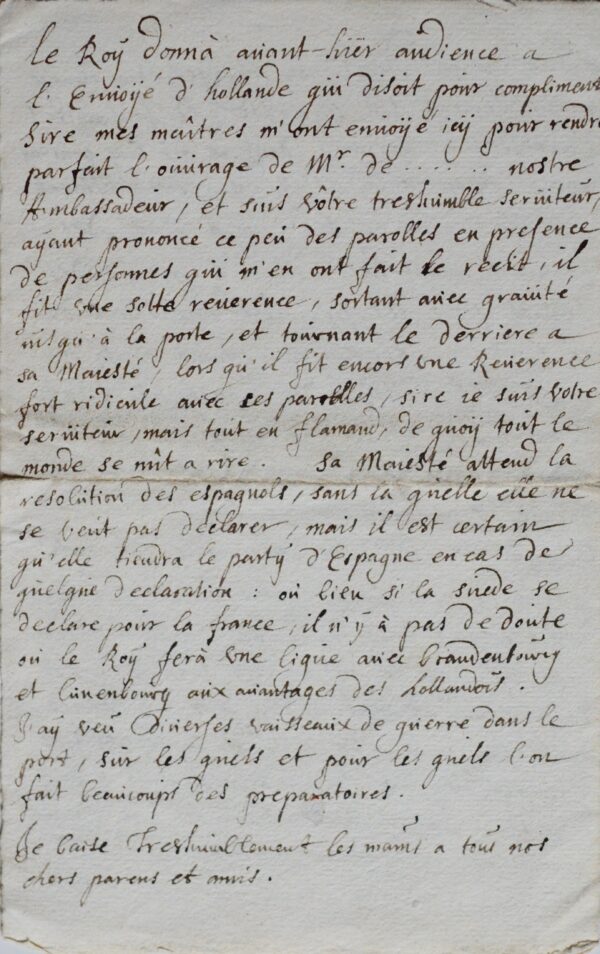 le Roÿ donnà auant-hiër audience a
l'Enuoyé d'hollande qui disoit pour compliment
Sire mes maîtres m'ont enuoyé icy pour rendre
parfait l'ouurage de Mr. de ....... nostre
Ambassadeur, et suis vôtre treshumble seruiteur,
ayant prononcé ce peu des parolles en presence
de personnes qui m'en ont fait le recit, il
fit vne sotte reuerence, sortant auec grauité
iusqu'à la porte, et tournant le derriere a
sa Maiesté, lors qu'il fit encors vne Reuerence
fort ridicule auec ses parolles, sire ie suis votre
seruiteur, mais tout en flamand, de quoy tout le
monde se mît a rire. Sa Maiesté attend la
resolution des espagnols, sans la quelle elle ne
se veut pas declarer, mais il est certain
qu'elle tiendra le party d'Espagne en cas de
quelque declaration : ou bien si la suede se
declare pour la france, il n'y à pas de doute
ou le Roy ferà vne ligue auec brandenbourg
et lunenbourg aux auantages des hollandois.
J'ay veu diuerses vaisseaux de guerre dans le
port, sur les quels et pour les quels l'on
fait beaucoups des preparatoires.
Je baise Treshumblement les mains a tous nos
chers parens et amis.